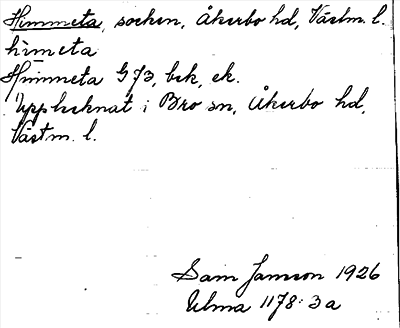 Himmeta, socken, Åkerbo hd, Västm. l.
himeta
Himmeta G73, bck, ek.
Upptecknat i Bro sn, Åkerbo hd,
Västm. l.
Sam Jansson 1926
Ulma 1178:3a